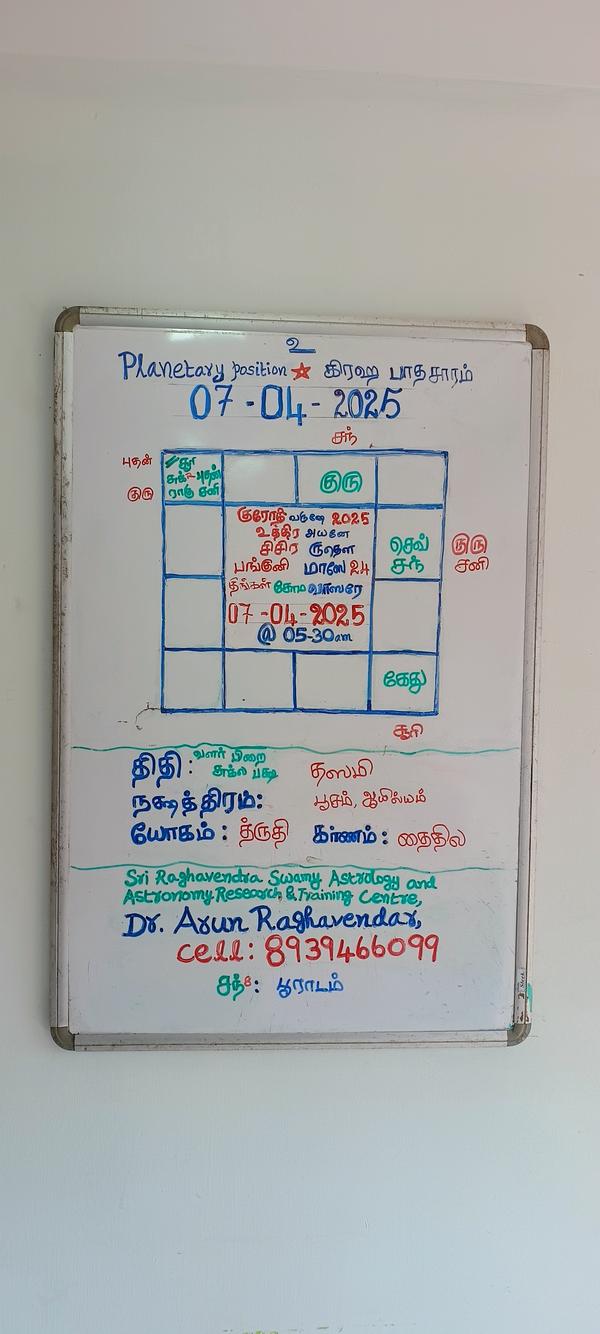 உ
Planetary position ☆ கிரஹ பாதசாரம்
07-04-2025
சந்
புதன்
குரு
சூ
சுக் புதன்
ராகு சனி
குரு
குரோதி வருஷே 2025
உத்திர அயனே
சிசிர ருதௌ
பங்குனி மாஸே 24
திங்கள் சோம வாஸரே
07-04-2025
@ 05-30am
செவ்
சந்
குரு
சனி
கேது
சூரி
திதி: வளர் பிறை
சுக்ல பக்ஷ தஸமி
நக்ஷத்திரம்: பூசம், ஆயில்யம்
யோகம்: த்ருதி கர்ணம்: தைதில
Sri Raghavendra Swamy Astrology and
Astronomy Research & Training Centre,
Dr. Arun Raghavendar,
cell: 8939466099
சந் 8: பூராடம்